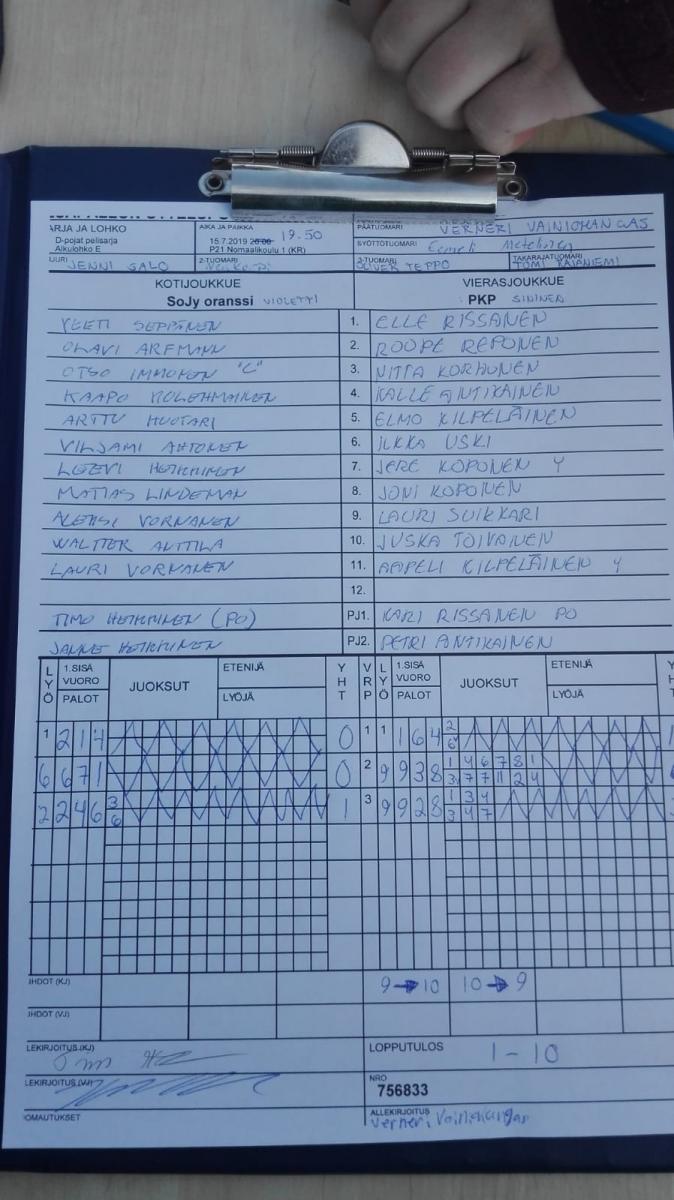 D-pojat pelisarja
Alkulohko E
AIKA JA PAIKKA
15.7.2019 20:00 19.50
P21 Nomaalikoulu 1 (KR)
PÄÄTUOMARI VERNERI VAINIONKANGAS
SYÖTTÖTUOMARI Eemeli
JENNI SALO
2-TUOMARI
3-TUOMARI OLIVER TEPPO
TAKARAJATUOMARI TOMI RAJANIEMI
KOTIJOUKKUE VIERASJOUKKUE
SoJy oranssi VIOLETTI PKP SININEN
VEETI SEPPÄNEN 1. ELLE RISSANEN
OLAVI ARFMANN 2. ROOPE REPONEN
OTSO IMMONEN "C" 3. NIITA KORHONEN
KAAPO KOLEHMAINEN 4. KALLE ANTIKAINEN
ARTTU HUOTARI 5. ELMO KILPELÄINEN
VILJAMI AHTONEN 6. ILKKA USKI
LEEVI HEIKKINEN 7. JERE KOPONEN Y
MATIAS LINDEMAN 8. JONI KOPONEN
ALEKSI VORNANEN 9. LAURI SUIKKARI
WALTTER ANTTILA 10. JUSKA TOIVANEN
LAURI VORNANEN 11. AAPELI KILPELÄINEN Y
12.
TIMO HEIKKINEN (PO) PJ1. KARI RISSANEN PO
JANNE HEIKKINEN PJ2. PETRI ANTIKAINEN
LYÖ 1.SISÄ VUORO PALOT JUOKSUT ETENIJÄ LYÖJÄ YHT VRP LYÖ 1.SISÄ VUORO PALOT JUOKSUT ETENIJÄ LYÖJÄ
1 2 1 4 0 1 1 1 6 4 2 6
6 6 7 1 0 2 9 9 3 8 1 4 6 7 8 1 3 7 7 11 2 4
2 2 4 6 3 6 1 3 9 9 2 8 1 3 4 3 4 7
9 → 10 10 → 9
LOPPUTULOS 1 - 10
NRO
756833
ALLEKIRJOITUS
Verneri Vainionkangas